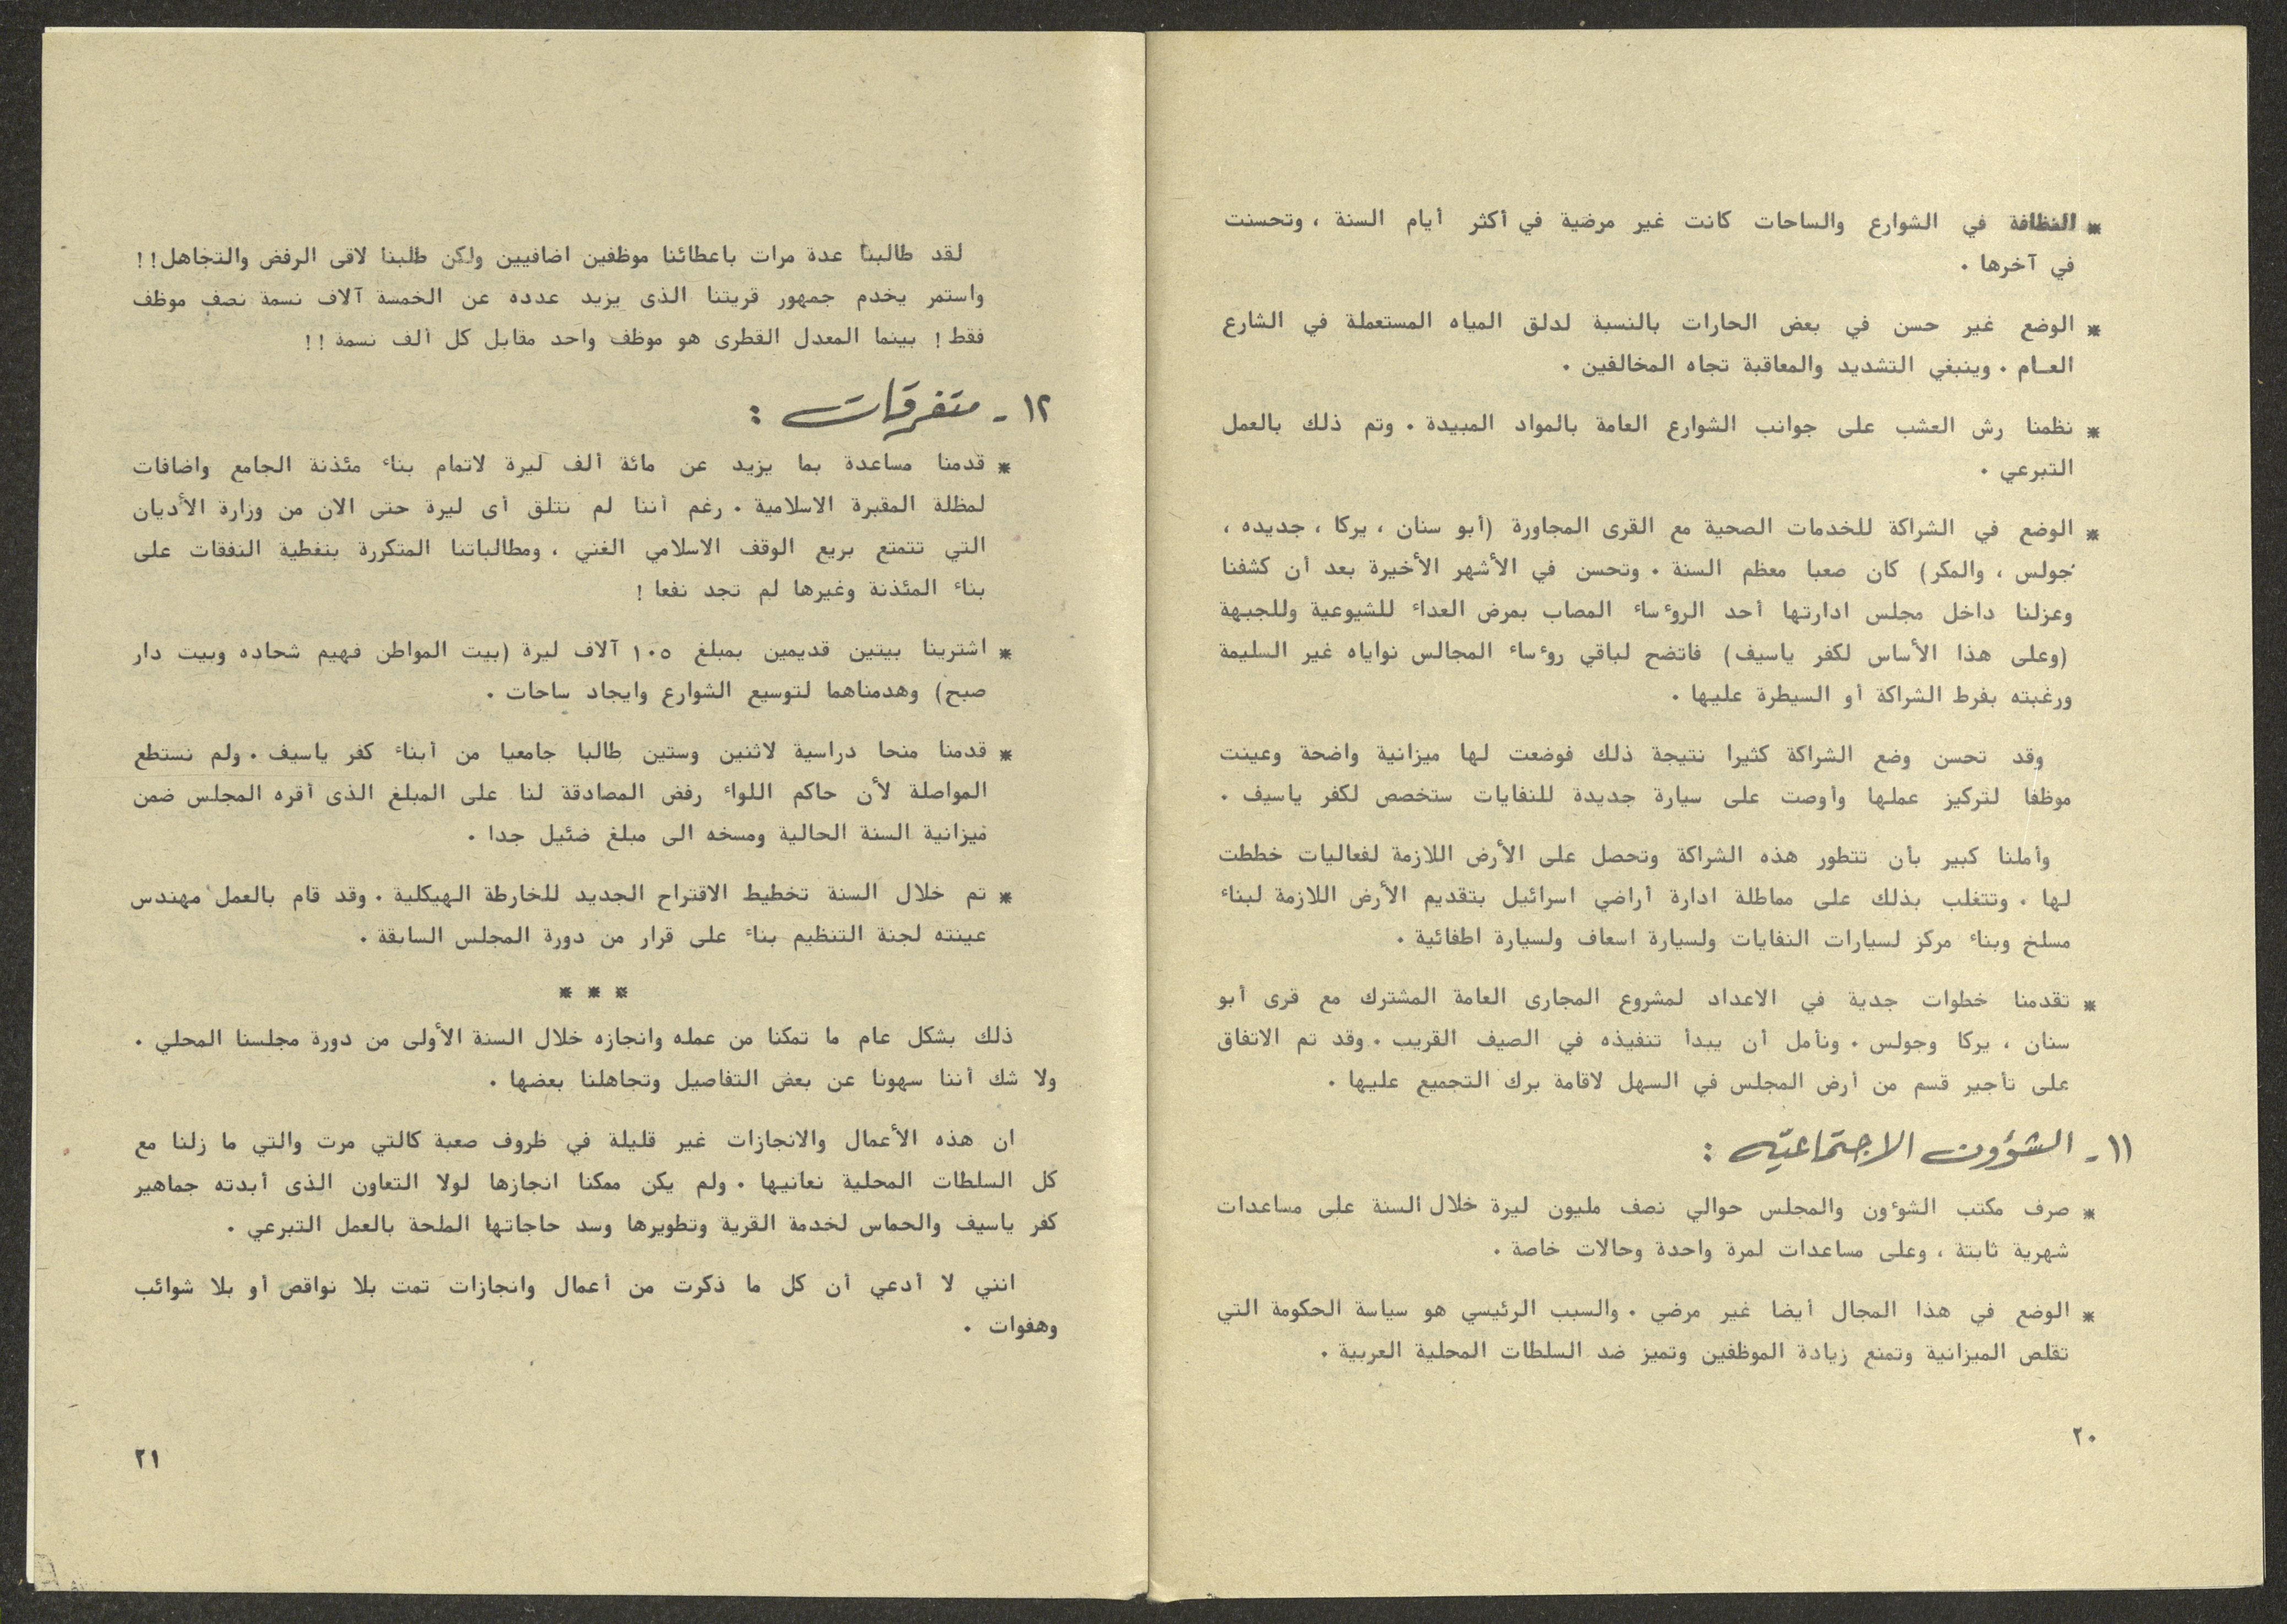 * النظافة في الشوارع والساحات كانت غير مرضية في أكثر أيام السنة ، وتحسنت
في آخرها .
* الوضع غير حسن في بعض الحارات بالنسبة لدلق المياه المستعملة في الشارع
العـام . وينبغي التشديد والمعاقبة تجاه المخالفين .
* نظمنا رش العشب على جوانب الشوارع العامة بالمواد المبيدة . وتم ذلك بالعمل
التبرعي .
* الوضع في الشراكة للخدمات الصحية مع القرى المجاورة (أبو سنان ، يركا ، جديده ،
جولس ، والمكر) كان صعبا معظم السنة . وتحسن في الأشهر الأخيرة بعد أن كشفنا
وعزلنا داخل مجلس ادارتها أحد الروٴساء المصاب بمرض العداء للشيوعية وللجبهة
(وعلى هذا الأساس لكفر ياسيف) فاتضح لباقي روٴساء المجالس نواياه غير السليمة
ورغبته بفرط الشراكة أو السيطرة عليها .
وقد تحسن وضع الشراكة كثيرا نتيجة ذلك فوضعت لها ميزانية واضحة وعينت
موظفا لتركيز عملها وأوصت على سيارة جديدة للنفايات ستخصص لكفر ياسيف .
وأملنا كبير بأن تتطور هذه الشراكة وتحصل على الأرض اللازمة لفعاليات خططت
لها . وتتغلب بذلك على مماطلة ادارة أراضي اسرائيل بتقديم الأرض اللازمة لبناء
مسلخ وبناء مركز لسيارات النفايات ولسيارة اسعاف ولسيارة اطفائية .
* تقدمنا خطوات جدية في الاعداد لمشروع المجارى العامة المشترك مع قرى أبو
سنان ، يركا وجولس . ونأمل أن يبدأ تنفيذه في الصيف القريب . وقد تم الاتفاق
على تأجير قسم من أرض المجلس في السهل لاقامة برك التجميع عليها .
١١ - الشؤون الاجتماعيّه :
* صرف مكتب الشوٴون والمجلس حوالي نصف مليون ليرة خلال السنة على مساعدات
شهرية ثابتة ، وعلى مساعدات لمرة واحدة وحالات خاصة .
* الوضع في هذا المجال أيضا غير مرضي . والسبب الرئيسي هو سياسة الحكومة التي
تقلص الميزانية وتمنع زيادة الموظفين وتميز ضد السلطات المحلية العربية .
٢٠
لقد طالبنا عدة مرات باعطائنا موظفين اضافيين ولكن طلبنا لاقى الرفض والتجاهل!!
واستمر يخدم جمهور قريتنا الذى يزيد عدده عن الخمسة آلاف نسمة نصف موظف
فقط ! بينما المعدل القطرى هو موظف واحد مقابل كل ألف نسمة !!
١٢ - متفرقات :
* قدمنا مساعدة بما يزيد عن مائة ألف ليرة لاتمام بناء مئذنة الجامع واضافات
لمظلة المقبرة الاسلامية . رغم أننا لم نتلق أى ليرة حتى الان من وزارة الأديان
التي تتمتع بريع الوقف الاسلامي الغني ، ومطالباتنا المتكررة بتغطية النفقات على
بناء المئذنة وغيرها لم تجد نفعا !
* اشترينا بيتين قديمين بمبلغ ١٠٥ آلاف ليرة (بيت المواطن فهيم شحاده وبيت دار
صبح) وهدمناهما لتوسيع الشوارع وايجاد ساحات .
* قدمنا منحا دراسية لاثنين وستين طالبا جامعيا من أبناء كفر ياسيف . ولم نستطع
المواصلة لأن حاكم اللواء رفض المصادقة لنا على المبلغ الذى أقره المجلس ضمن
ميزانية السنة الحالية ومسخه الى مبلغ ضئيل جدا .
* تم خلال السنة تخطيط الاقتراح الجديد للخارطة الهيكلية . وقد قام بالعمل مهندس
عينته لجنة التنظيم بناء على قرار من دورة المجلس السابقة .
* * *
ذلك بشكل عام ما تمكنا من عمله وانجازه خلال السنة الأولى من دورة مجلسنا المحلي .
ولا شك أننا سهونا عن بعض التفاصيل وتجاهلنا بعضها .
ان هذه الأعمال والانجازات غير قليلة في ظروف صعبة كالتي مرت والتي ما زلنا مع
كل السلطات المحلية نعانيها . ولم يكن ممكنا انجازها لولا التعاون الذى أبدته جماهير
كفر ياسيف والحماس لخدمة القرية وتطويرها وسد حاجاتها الملحة بالعمل التبرعي .
انني لا أدعي أن كل ما ذكرت من أعمال وانجازات تمت بلا نواقص أو بلا شوائب
وهفوات .
٢١